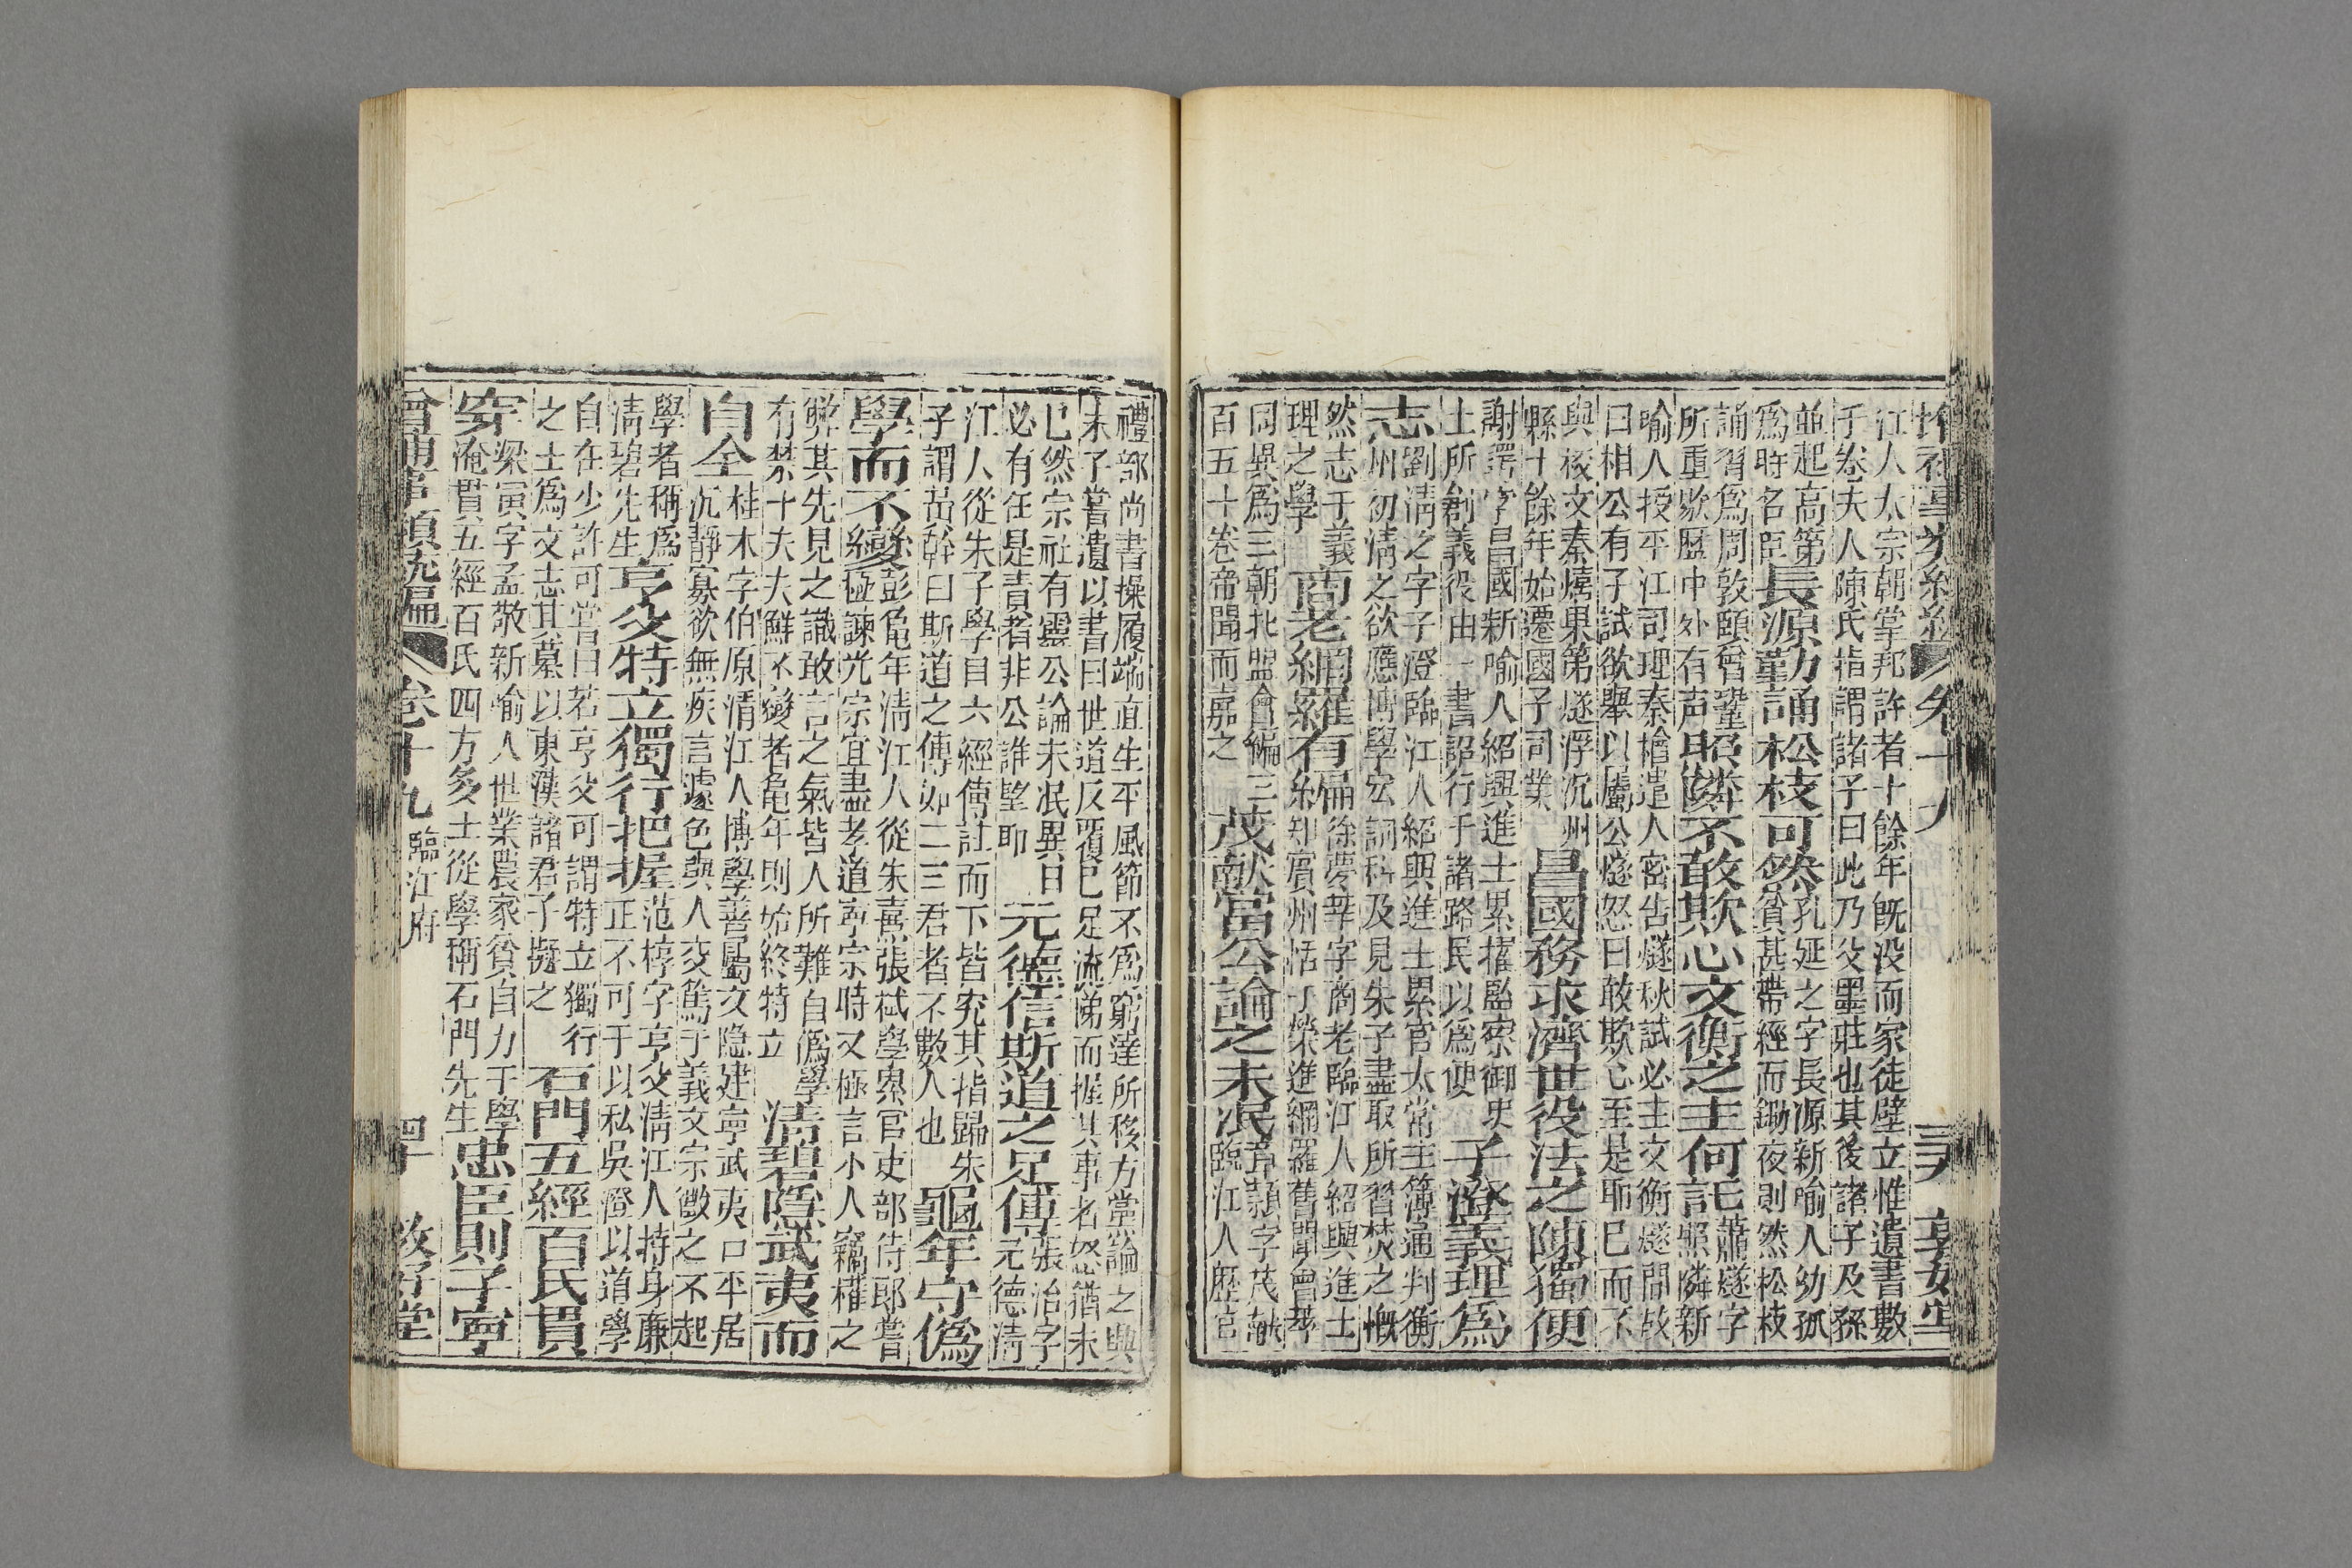 江人太宗朝掌邦許者十餘年既没而家徒壁立惟遺書數
千卷夫人陳氏指謂諸子曰此乃父墨莊也其後諸子及孫
並起高第
爲時名臣
長源勤誦松枝可然
孔延之字長源新喻人幼孤
貧甚帶經而鋤夜則然松枝
誦習爲周敦頤曾鞏
所重歟歷中外有声
照隣不敢欺心文衡之主何託
蕭燧字
照隣新
喻人授平江司理秦檜遣人密告燧秋試必主文衡燧問故
曰相公有子試欲舉以屬公燧怒曰敢欺心至是耶已而不
與校文秦熺果第燧浮沉州
縣十餘年始遷國子司業
昌國務求濟世役法之陳獨便
謝諤字昌國新喻人紹興進士累擢監察御史
土所創義役由一書詔行于諸路民以爲便
子澄義理爲
志
劉清之字子澄臨江人紹興進士累官太常主簿通判衡
州初清之欲應博學宏詞科及見朱子盡取所習焚之慨
然志于義
理之學
商老網羅有編
徐夢莘字商老臨江人紹興進士
知賓州恬于榮進網羅舊聞會萃
同異爲三朝北盟會編三
百五十卷帝聞而嘉之
茂献當公論之未泯
章頴字茂献
臨江人歷官
禮部尚書操履端直生平風節不爲窮達所移方黨論之興
朱子嘗遺以書曰世道反覆已足流涕而握其事者怒猶未
已然宗社有靈公論未泯異日
必有任是責者非公誰望耶
元德信斯道之足傳
張洽字
元德清
江人從朱子學自六經傳註而下皆究其指歸朱
子謂黃幹曰斯道之傳如二三君者不數人也
龜年守僞
學而不變
彭龜年清江人從朱熹張栻學累官吏部侍郎嘗
極諫光宗宜盡孝道寧宗時又極言小人竊權之
弊其先見之識敢言之氣皆人所難自僞學
有禁十夫夫鮮不變者龜年則始終特立
清碧隱武夷而
自全
杜本字伯原清江人博學善屬文隐建寧武夷口平居
沉靜寡欲無疾言遽色與人交篤于義文宗徵之不起
學者稱爲
清碧先生
亨父特立獨行把握
范梈字亨父清江人持身廉
正不可于以私吳澄以道學
自任少許可嘗曰若亨父可謂特立獨行
之士爲文志其墓以東漢諸君子擬之
石門五經百氏貫
穿
梁寅字孟敬新喻人世業農家貧自力于學
淹貫五經百氏四方多士從學稱石門先生
忠臣則子寧
增補事類統編
卷十九
臨江府
四十
敦好堂